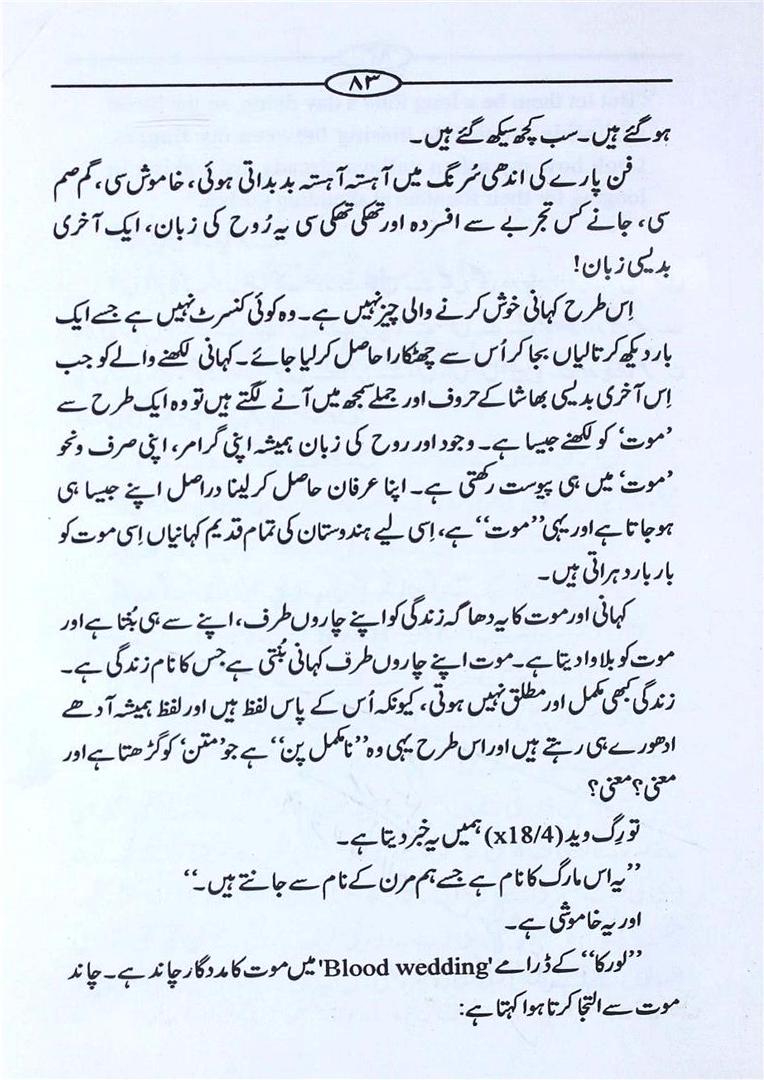 ۸۳
ہوگئے ہیں۔ سب کچھ سیکھ گئے ہیں۔
فن پارے کی اندھی سُرنگ میں آہستہ آہستہ بدبداتی ہوئی، خاموش سی، گم صم
سی، جانے کس تجربے سے افسردہ اور تھکی تھکی سی یہ رُوح کی زبان، ایک آخری
بدیسی زبان!
اِس طرح کہانی خوش کرنے والی چیز نہیں ہے۔ وہ کوئی کنسرٹ نہیں ہے جسے ایک
بار دیکھ کر تالیاں بجا کر اُس سے چھٹکارا حاصل کرلیا جائے۔ کہانی لکھنے والے کو جب
اِس آخری بدیسی بھاشا کے حروف اور جملے سمجھ میں آنے لگتے ہیں تو وہ ایک طرح سے
’موت‘ کو لکھنے جیسا ہے۔ وجود اور روح کی زبان ہمیشہ اپنی گرامر، اپنی صرف ونحو
’موت‘ میں ہی پیوست رکھتی ہے۔ اپنا عرفان حاصل کرلینا دراصل اپنے جیسا ہی
ہوجاتا ہے اور یہی ’’موت‘‘ ہے، اِسی لیے ہندوستان کی تمام قدیم کہانیاں اِسی موت کو
بار بار دہراتی ہیں۔
کہانی اور موت کا یہ دھاگہ زندگی کو اپنے چاروں طرف، اپنے سے ہی بُنتا ہے اور
موت کو بلاوا دیتا ہے۔ موت اپنے چاروں طرف کہانی بُنتی ہے جس کا نام زندگی ہے۔
زندگی کبھی مکمل اور مطلق نہیں ہوتی، کیونکہ اُس کے پاس لفظ ہیں اور لفظ ہمیشہ آدھے
ادھورے ہی رہتے ہیں اور اس طرح یہی وہ ’’نامکمل پن‘‘ ہے جو ’متن‘ کو گڑھتا ہے اور
معنی؟ معنی؟
تو رِگ وید (x18/4) ہمیں یہ خبر دیتا ہے۔
’’یہ اس مارگ کا نام ہے جسے ہم مرن کے نام سے جانتے ہیں۔‘‘
اور یہ خاموشی ہے۔
’’لورکا‘‘ کے ڈرامے 'Blood wedding' میں موت کا مددگار چاند ہے۔ چاند
موت سے التجا کرتا ہوا کہتا ہے: